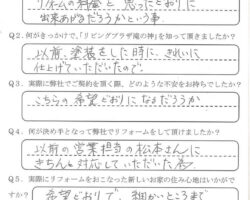 リフォームの料金と思ったとおりに
出来あがるだろうかという事
Q2. 何がきっかけで、「リビングプラザ滝の神」を知って頂きましたか?
以前、塗装をした時に、きれいに
仕上げていただいたので。
Q3. 実際に弊社でご契約を頂く際、どのような不安をお持ちでしたか?
こちらの希望どおりになるだろうか
Q4. 何が決め手となって弊社でリフォームをして頂けましたか?
以前の営業担当の松本さんに
きちんと対応していただいた為
Q5. 実際にリフォームをおこなった新しいお家の住み心地はいかがで
希望どおりで、細かいところまで